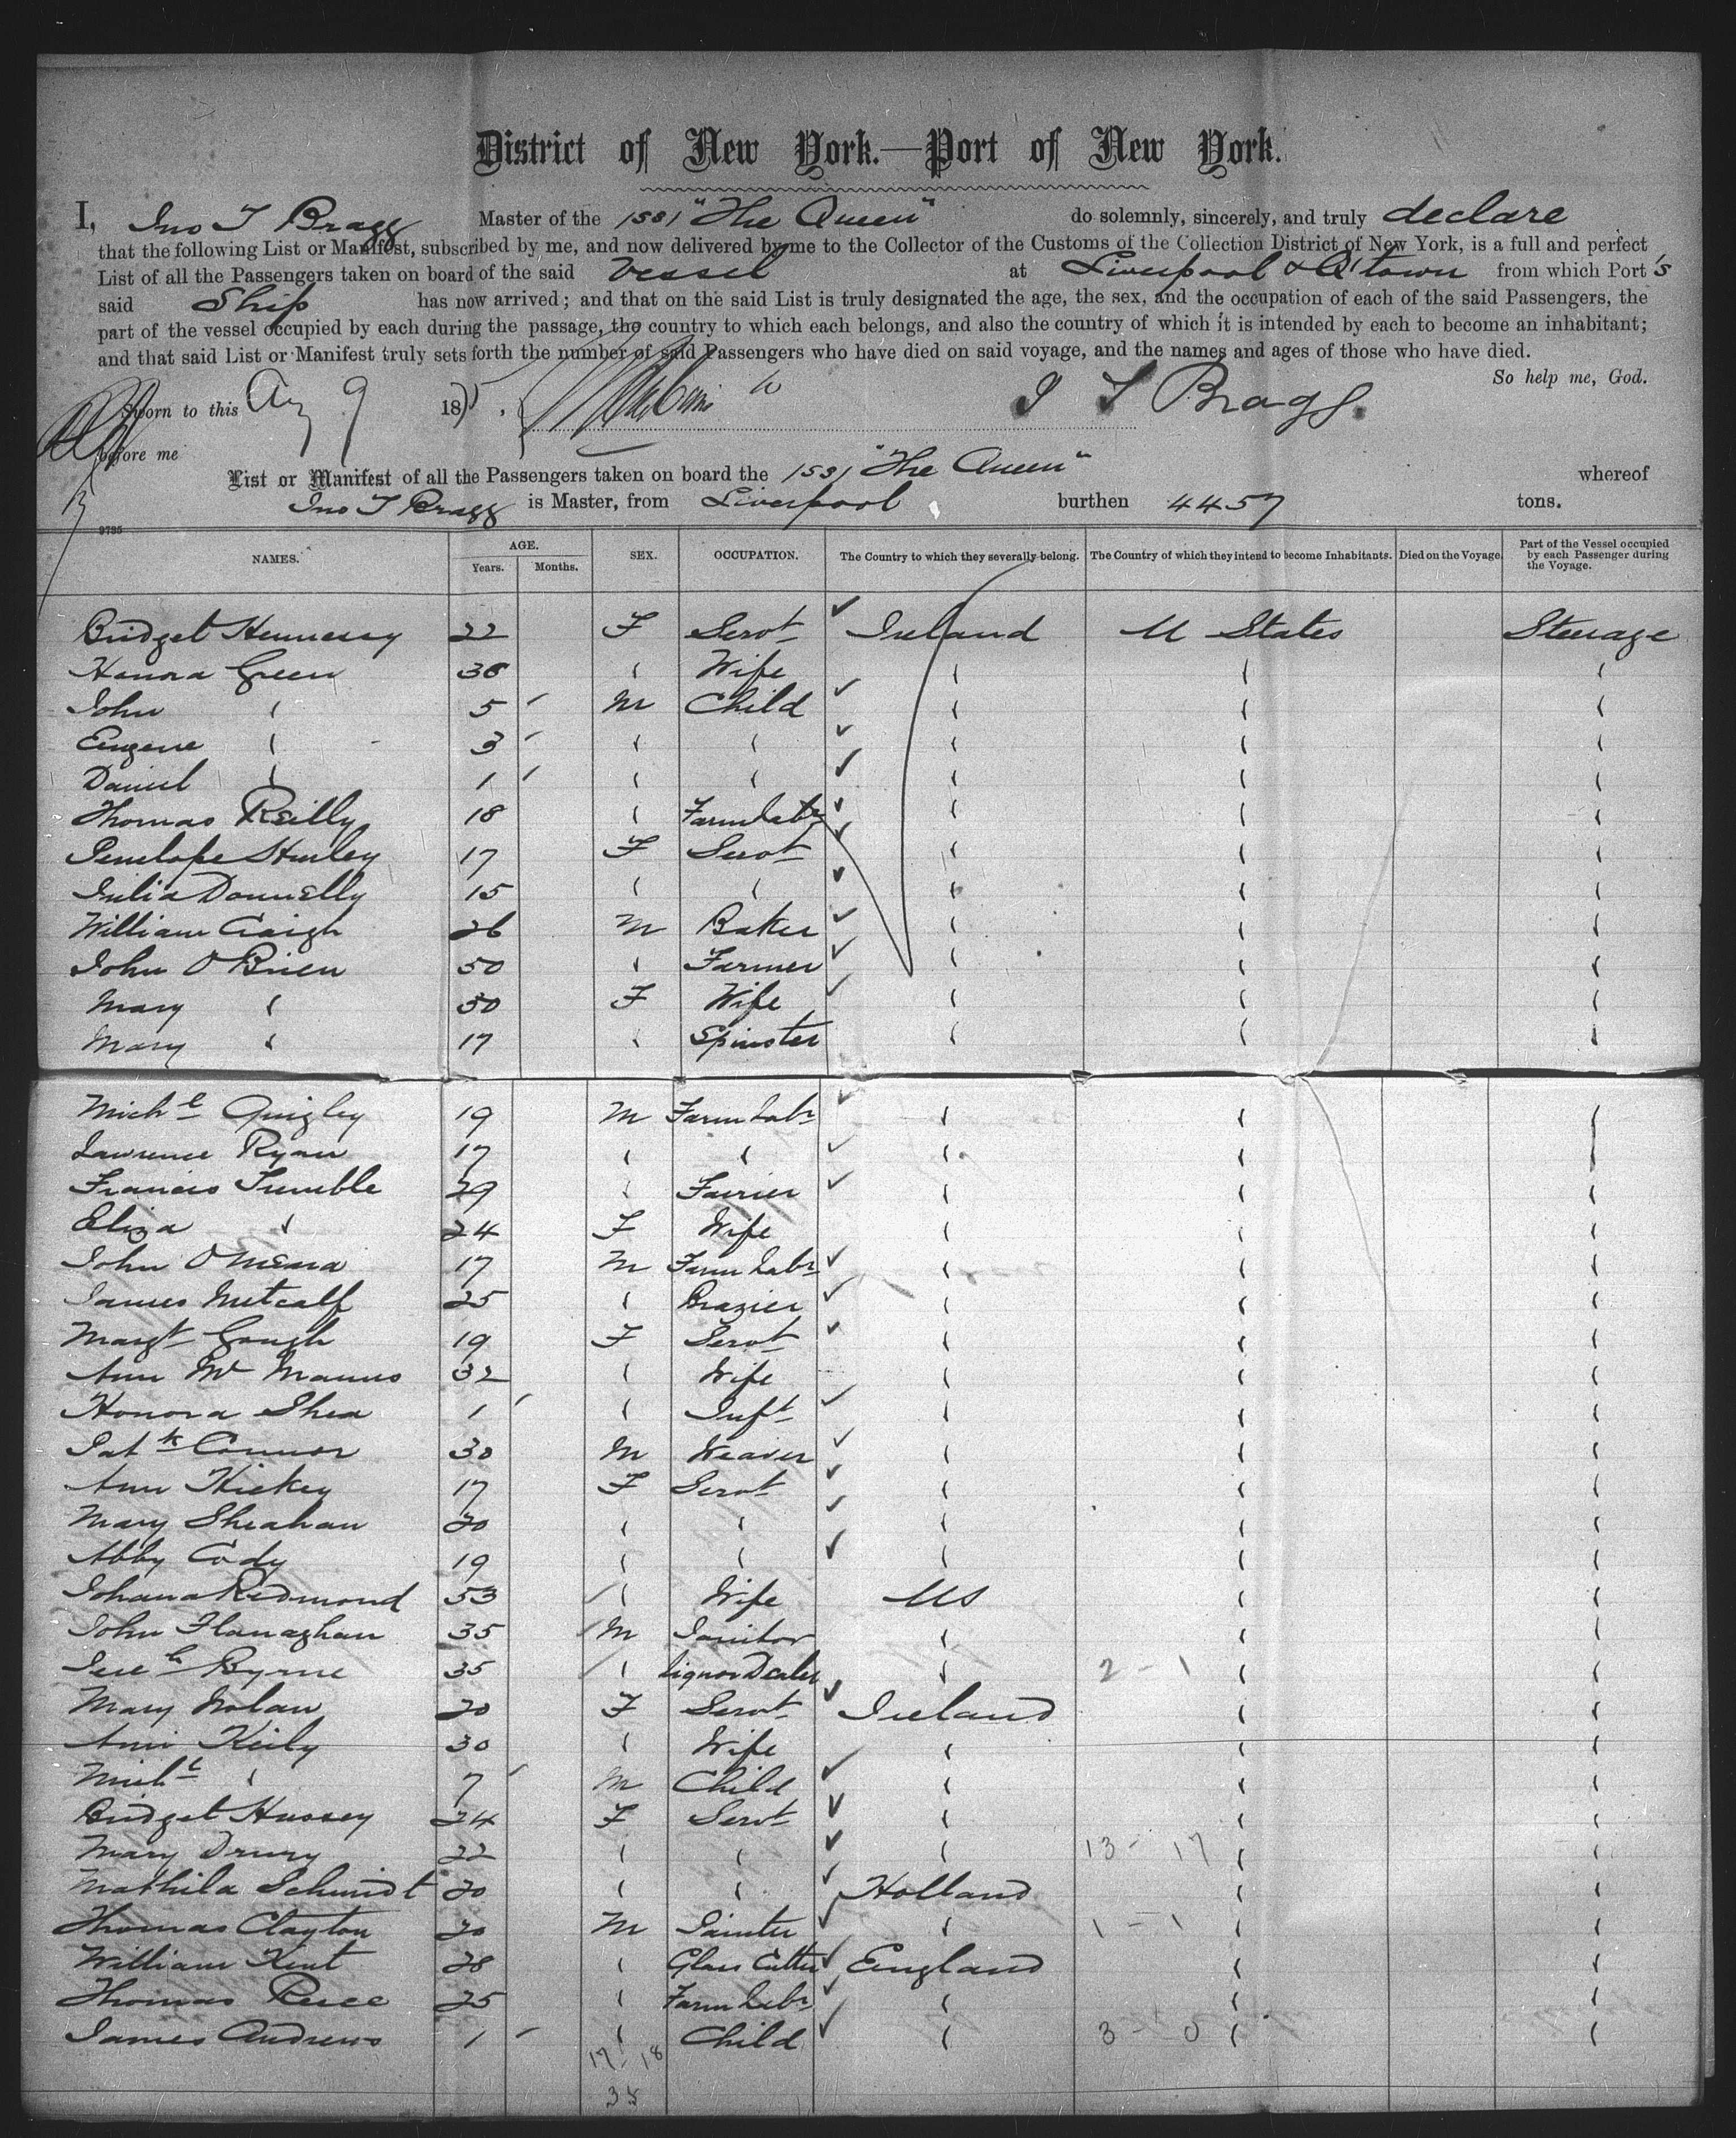 District of New York.—Port of New York.
I, Jno T Bragg Master of the 1581 "The Queen" do solemnly, sincerely, and truly declare
that the following List or Manifest, subscribed by me, and now delivered by me to the Collector of the Customs of the Collection District of New York, is a full and perfect
List of all the Passengers taken on board of the said Vessel at Liverpool & Q'town from which Port's
said Ship has now arrived; and that on the said List is truly designated the age, the sex, and the occupation of each of the said Passengers, the
part of the vessel occupied by each during the passage, the country to which each belongs, and also the country of which it is intended by each to become an inhabitant;
and that said List or Manifest truly sets forth the number of said Passengers who have died on said voyage, and the names and ages of those who have died.
So help me, God.
Sworn to this Aug 9 1875, J T Bragg
before me
List or Manifest of all the Passengers taken on board the 1581 "The Queen" whereof
Jno T Bragg is Master, from Liverpool burthen 4457 tons.
9735
NAMES. AGE. Years. Months. SEX. OCCUPATION. The Country to which they severally belong. The Country of which they intend to become Inhabitants. Died on the Voyage. Part of the Vessel occupied by each Passenger during the Voyage.
Bridget Hennessy 22 F Servt Ireland U States Steerage
Honora Green 38 " Wife " " "
John " 5 M Child " " "
Eugene " 3 " " " " "
Daniel " 1 " " " " "
Thomas Reilly 18 " Farm Labr " " "
Penelope Hurley 17 F Servt " " "
Julia Donnelly 15 " " " " "
William 26 M Baker " " "
John O'Brien 50 " Farmer " " "
Mary " 50 F Wife " " "
Mary " 17 " Spinster " " "
Michl Quigley 19 M Farm Labr " " "
Lawrence Ryan 17 " " " " "
Francis Trimble 29 " Farrier " " "
Eliza " 24 F Wife " " "
John O'Meara 17 M Farm Labr " " "
James Metcalf 25 " Brazier " " "
Margt Gough 19 F Servt " " "
Ann Mc Manus 32 " Wife " " "
Honora Shea 1 " Inft " " "
Patk Connor 30 M Weaver " " "
Ann Hickey 17 F Servt " " "
Mary Sheahan 20 " " " " "
Abby Cody 19 " " " " "
Johana Redmond 53 " Wife US " "
John Flanaghan 35 M Janitor " " "
Jereh Byrne 35 " Liquor Dealer " 2 - 1 "
Mary Nolan 20 F Servt Ireland " "
Ann Keily 30 " Wife " " "
Michl " 7 M Child " " "
Bridget Hussey 24 F Servt " " "
Mary Drury 22 " " " 13 - 17 " "
Mathila Schmidt 20 " " Holland " "
Thomas Clayton 20 M Painter " 1 - 1 " "
William Kent 28 " Glass Cutter England " "
Thomas Reece 25 " Farm Labr " " "
James Andrews 1 " Child " 3 - 0 " "
17 - 18
35